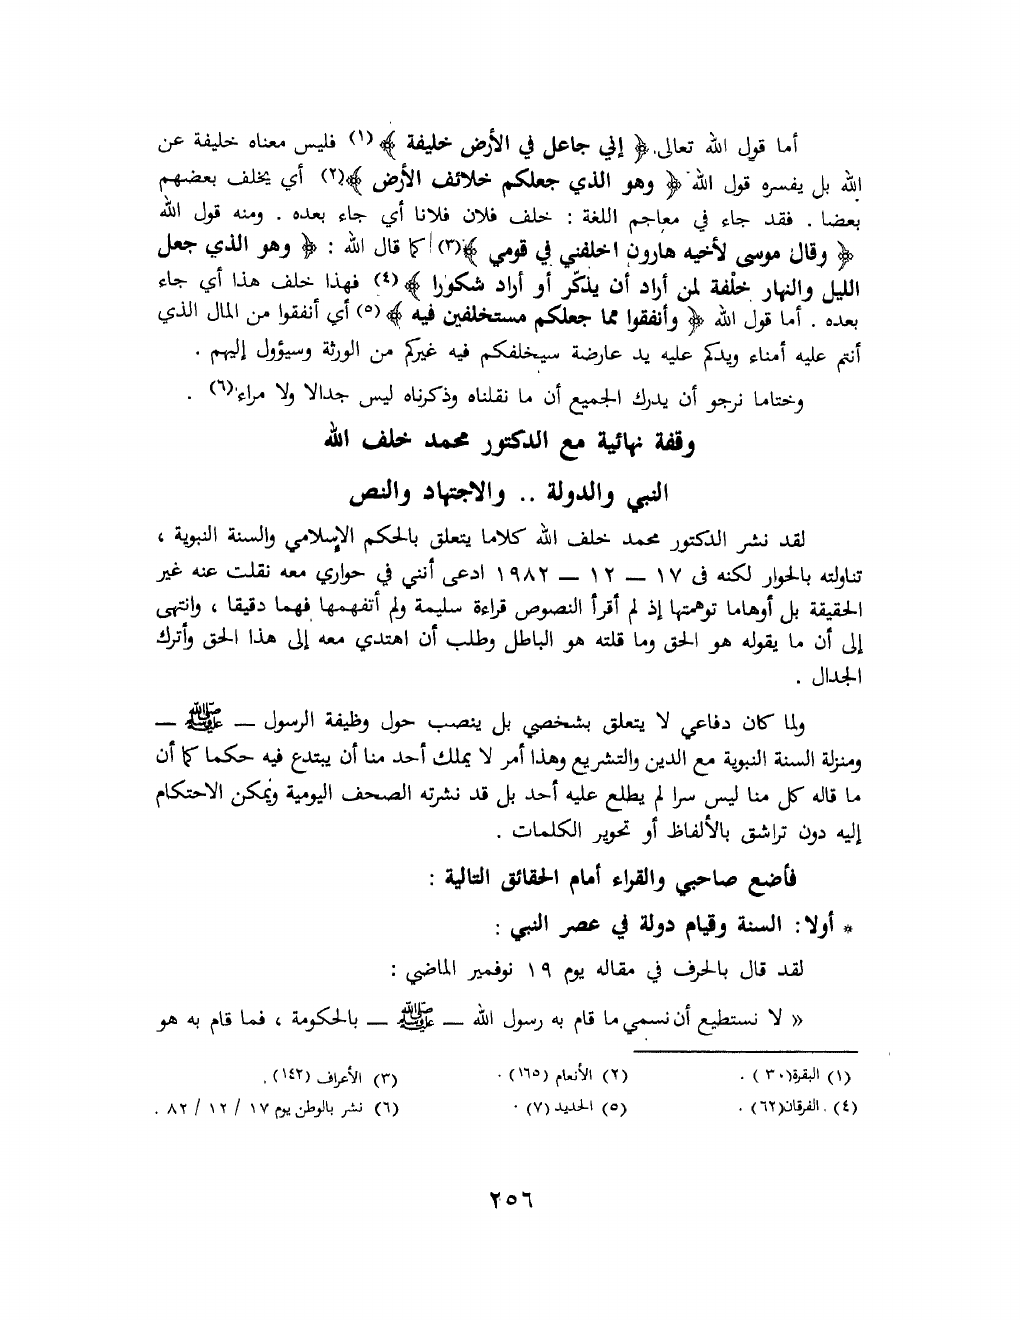 أما قول الله تعالى ﴿ إني جاعل في الأرض خليفة ﴾(١) فليس معناه خليفة عن
الله بل يفسره قول الله ﴿ وهو الذي جعلكم خلائف الأرض ﴾(٢) أي يخلف بعضهم
بعضا . فقد جاء في معاجم اللغة : خلف فلان فلانا أي جاء بعده . ومنه قول الله
﴿ وقال موسى لأخيه هارون اخلفني في قومي ﴾(٣) كما قال الله : ﴿ وهو الذي جعل
الليل والنهار خلْفة لمن أراد أن يذكّر أو أراد شكورا ﴾(٤) فهذا خلف هذا أي جاء
بعده . أما قول الله ﴿ وأنفقوا مما جعلكم مستخلفين فيه ﴾(٥) أي أنفقوا من المال الذي
أنتم عليه أمناء ويدكم عليه يد عارضة سيخلفكم فيه غيركم من الورثة وسيؤول إليهم .
وختاما نرجو أن يدرك الجميع أن ما نقلناه وذكرناه ليس جدالا ولا مراء(٦) .
وقفة نهائية مع الدكتور محمد خلف الله
النبي والدولة .. والاجتهاد والنص
لقد نشر الدكتور محمد خلف الله كلاما يتعلق بالحكم الإسلامي والسنة النبوية ،
تناولته بالحوار لكنه فى ١٧ — ١٢ — ١٩٨٢ ادعى أنني في حواري معه نقلت عنه غير
الحقيقة بل أوهاما توهمتها إذ لم أقرأ النصوص قراءة سليمة ولم أتفهمها فهما دقيقا ، وانتهى
إلى أن ما يقوله هو الحق وما قلته هو الباطل وطلب أن اهتدي معه إلى هذا الحق وأترك
الجدال .
ولما كان دفاعي لا يتعلق بشخصي بل ينصب حول وظيفة الرسول — ﷺ —
ومنزلة السنة النبوية مع الدين والتشريع وهذا أمر لا يملك أحد منا أن يبتدع فيه حكما كما أن
ما قاله كل منا ليس سرا لم يطلع عليه أحد بل قد نشرته الصحف اليومية ويمكن الاحتكام
إليه دون تراشق بالألفاظ أو تحوير الكلمات .
فأضع صاحبي والقراء أمام الحقائق التالية :
* أولا : السنة وقيام دولة في عصر النبي :
لقد قال بالحرف في مقاله يوم ١٩ نوفمبر الماضي :
« لا نستطيع أن نسمي ما قام به رسول الله — ﷺ — بالحكومة ، فما قام به هو
(١) البقرة(٣٠) . (٢) الأنعام (١٦٥) . (٣) الأعراف (١٤٢) .
(٤) . الفرقان(٦٢) . (٥) الحديد (٧) . (٦) نشر بالوطن يوم ١٧ / ١٢ / ٨٢ .
٢٥٦